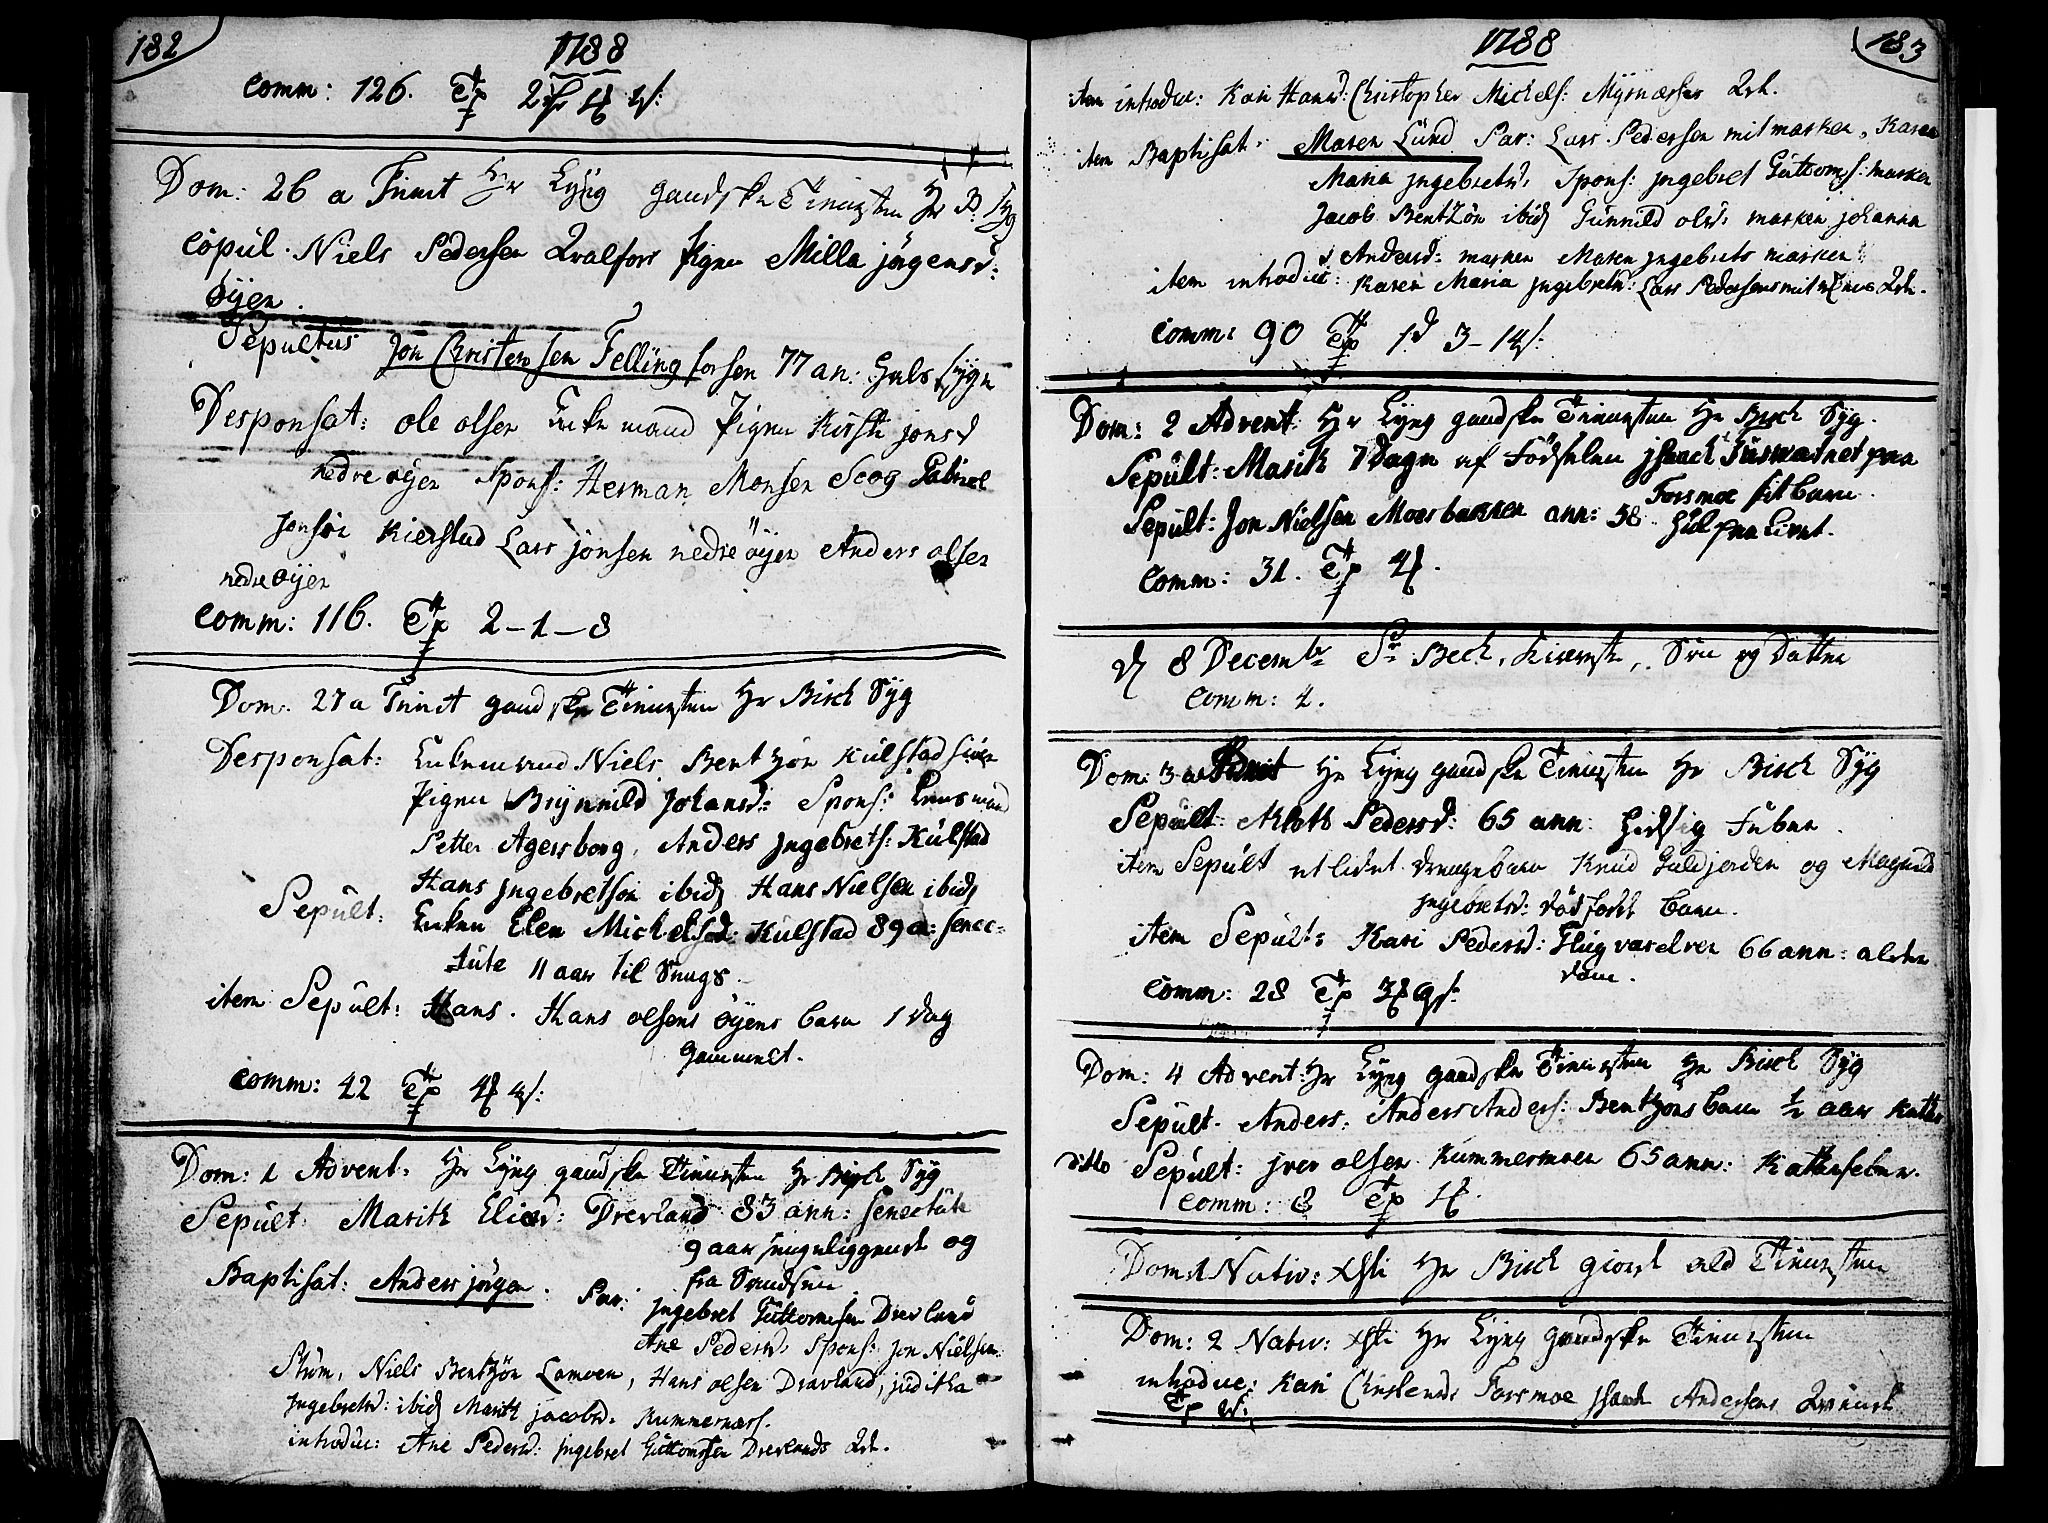 182
1788
Comm: 126. Tp 2 4
Dom: 26 a Trinit Hr Lyng gand ske Tienesten Hr B: Syg
Copul. Niels Pedersen Qvalfors Pigen Milla jörgensd:
öyen.
Sepultus Jon Christensen Fellingforsen 77 an: Hals Syge
Desponsat: ole olsen Enke mand Pigen Kirsti jonsd
nedre öyen Spons: Herman Monsen Scog Gabriel
Jonsön Kierstad Lars jonsen nedre öyen Anders olsen
nedre öyen
Comm: 116. Tp 2-1-8
Dom. 27 a Trinit gand ske Tienesten Hr Birch Syg
Desponsat: Enkemand Niels Bentzön Kulstad
Pigen Brynnild Johansd: Spons:
Petter Agersborg, Anders Jngebrets: Kulstad
Hans Jngebretsön ibid Hans Nielsen ibid
Sepult: Enken Elen Mickelsd: Kulstad 89 a: senec-
tute 11 aar til Sengs
item Sepult: Hans. Hans olsens öyens barn 1 Dag
Gammelt.
Comm: 42 Tp 4
Dom: 1 Advent: Hr Lyng gand ske Tienesten Hr Birch Syg
Sepult: Marith Eliæd: Drevland 83 ann: senectute
9 aar sengeliggende og
fra Sandsen
Baptisat: Anders jörgen. Par: Jngebret Guttormsen Drevland
Ane Pedersd: Spons: Jon Nielsen
Stüm, Niels Bentzön Lamoen, Hans olsen Dravland, juditha
Jngebretsd: ibid Marith jacobsd: Kummernæss.
introduc: Ane Pedersd: jngebret Guttormsen Drevlands Qv.
183
1788
item introduc: Kari Hansd: Christopher Michels: Myrnæsses Qv.
item Baptisat. Maren Lund Par: Lars Pedersen mit marken, Karen
Maria jngebretsd: Spons: jngebret Guttorms: marken
Jacob Bentzön ibid Gunnild olsd: marken johanna
Andersd: marken Maren jngebrets marken
item introduc: Karen Maria jngebretsd: Lars Pedersens Qv.
Comm: 90 Tp 1d 3-14s:
Dom: 2 Advent Hr Lyng gand ske Tienesten Hr Birch Syg.
Sepult: Marith 7 Dage af Födselen jsaach paa
Forsmoe sit barn.
Sepult: Jon Nielsen Moesbakken ann: 58 Hul paa Livet.
Comm: 31. Tp 4.
d 8 Decembr Sr Bech, Kiereste, Sön og Datter
Comm: 4.
Dom: 3 Hr Lyng gand ske Tienesten Hr Birch Syg
Sepult: Pedersd: 65 ann: Hidsig Feber.
item Sepult et lidet drengebarn Knud Guldjorden og Magnild
jngebretsd: dödfödt barn.
item Sepult: Kari Pedersd: 66 ann: alder
dom.
Comm: 28 Tp 9s:
Dom: 4 Advent: Hr Lyng gand ske Tienesten Hr Birch Syg
Sepult. Anders. Anders Anders: Bentzöns barn 1/2 aar
ditto Sepult: jver olsen Kummermoen 65 ann:
Comm: 8 Tp 1
Dom: 1 Nativ: Xsti Hr Birch giorde ald Tienesten
Dom: 2 Nativ: Xsti Hr Lyng gandske Tienesten
introduc: Kari Christensd: Forsmoe jsaach Andersens Qvinde
Tp